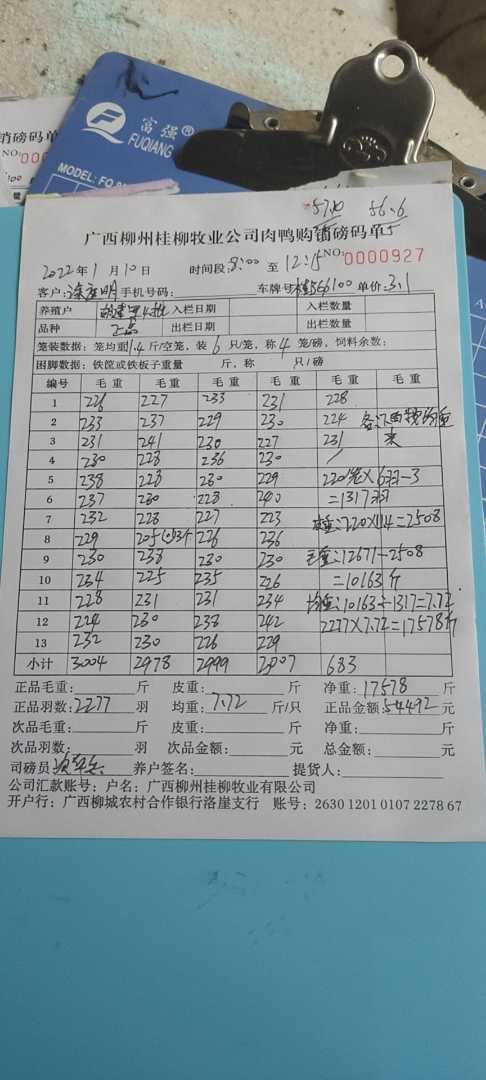 销磅码单
NO:
0000
富强®
FUQIANG
MODEL: FO
广西柳州桂柳牧业公司肉鸭购销磅码单
56.6
5
NO: 0000927
2022年1月10日 时间段:8:00至12:15
客户: 明 手机号码: 车牌号: 56100 单价:3.1
养殖户 入栏日期 入栏数量
品种 正品 出栏日期 出栏数量
笼装数据: 笼均重11.4斤/空笼, 装6只/笼, 称4笼/磅, 饲料余数:
困脚数据: 铁筐或铁板子重量 斤, 称 只/磅
编号 毛重 毛重 毛重 毛重 毛重 毛重
1 226 227 233 231 228
2 233 237 229 230 224
3 231 241 230 227 231
4 230 228 236 230 /
5 238 228 230 229 220笼×6羽-3
6 237 230 228 240 =1317羽
7 232 228 227 223 220×11.4=2508
8 229 205 226 236
9 230 238 230 230 毛重:12671-2508
10 234 225 235 226 =10163斤
11 228 231 231 234 均重:10163÷1317=7.72
12 224 230 238 242 2277×7.72=17578斤
13 232 230 226 229
小计 3004 2978 2999 3007 683
正品毛重: 斤 皮重: 斤 净重:17578斤
正品羽数:2277羽 均重:7.72斤/只 正品金额:54492元
次品毛重: 斤 皮重: 斤 净重: 斤
次品羽数: 羽 次品金额: 元 总金额: 元
司磅员: 养户签名: 提货人:
公司汇款账号: 户名: 广西柳州桂柳牧业有限公司
开户行: 广西柳城农村合作银行洛崖支行 账号: 2630 1201 0107 2278 67